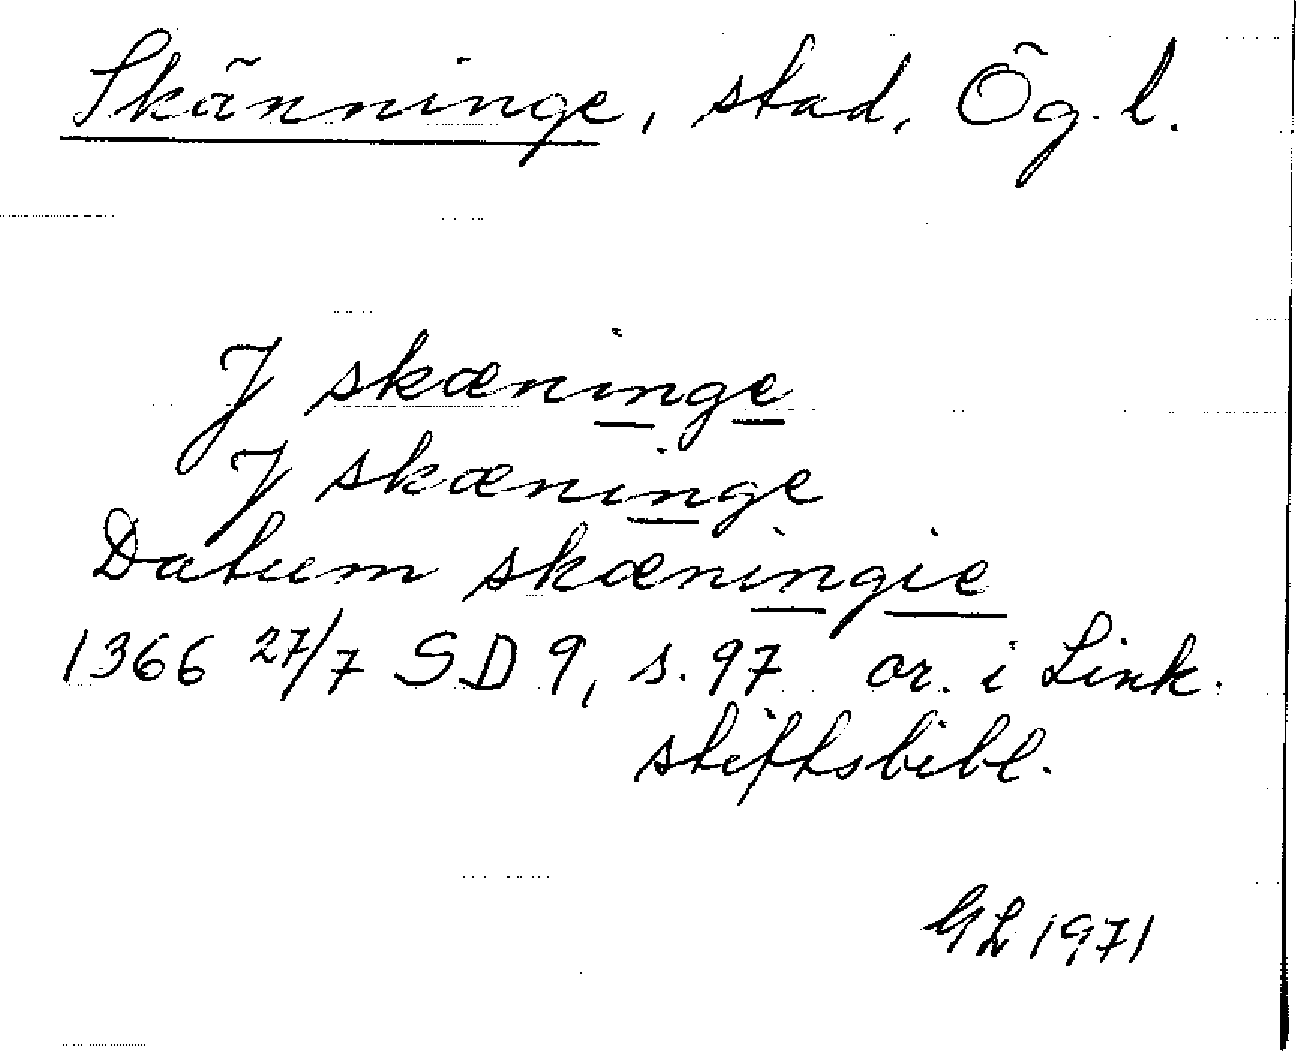 Skänninge, stad, Ög. l.
J skæninge
J skæninge
Datum skæningie
1366 27/7 SD 9, s. 97 or. i Link.
stiftsbibl.
GL 1971